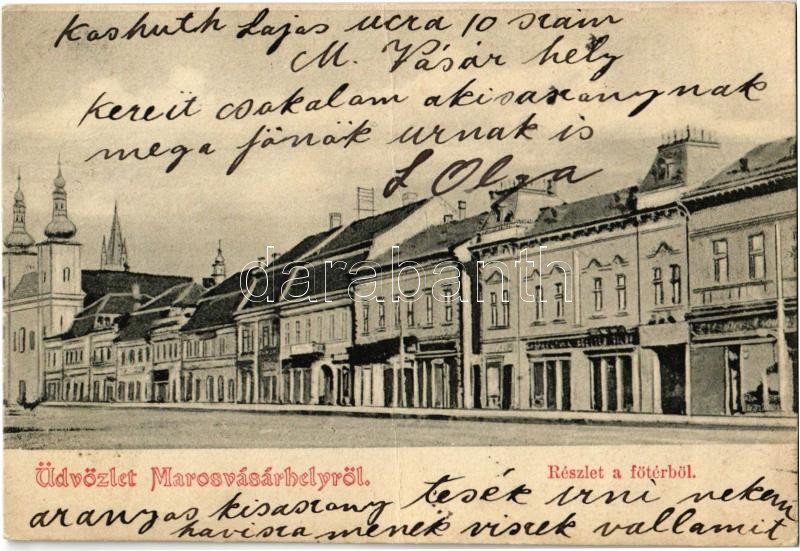 Koshuth Lajas ucra 10 szám
M. Vásár hely
kereit csokalam akisaszonynak
mega fönök urnak is
L Olga
darabanth
Üdvözlet Marosvásárhelyröl.
Részlet a fötérböl.
aranyos kisaszony tesék irni nekem
havisza menek viszek vallamit